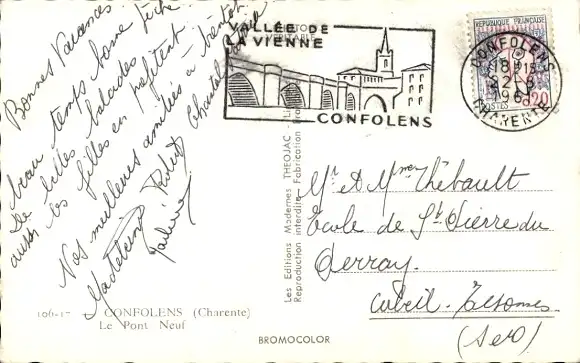 Bonnes Vacances
beau temps bonne
de belles balades
aussi les filles en profitent
Nos meilleures amitiés à bientôt
VALLÉE DE
LA VIENNE
CONFOLENS
REPUBLIQUE FRANÇAISE
POSTES
0,20
CONFOLENS
CHARENTE
Les Editions Modernes THEOJAC
Reproduction interdite Fabrication
Mr et Mme Thébault
Ecole de St Pierre du
Perray
Corbeil-Essonnes
(S et O)
106-17 CONFOLENS (Charente)
Le Pont Neuf
BROMOCOLOR